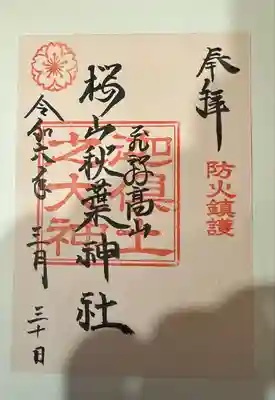 奉拝
防火鎮護
飛騨高山
桜山秋葉神社
迦倶土
之大神
令和六年三月三十日